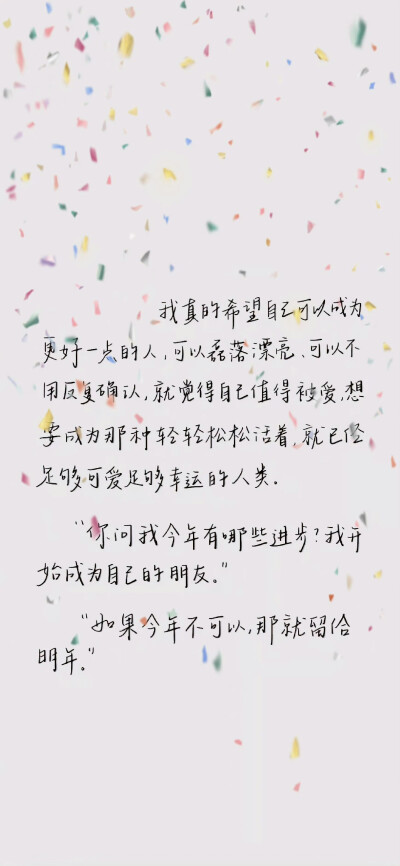 我真的希望自己可以成为
更好一点的人,可以磊落漂亮、可以不
用反复确认,就觉得自己值得被爱,想
要成为那种轻轻松松活着,就已经
足够可爱足够幸运的人类。
“你问我今年有哪些进步?我开
始成为自己的朋友。”
“如果今年不可以,那就留给
明年。”